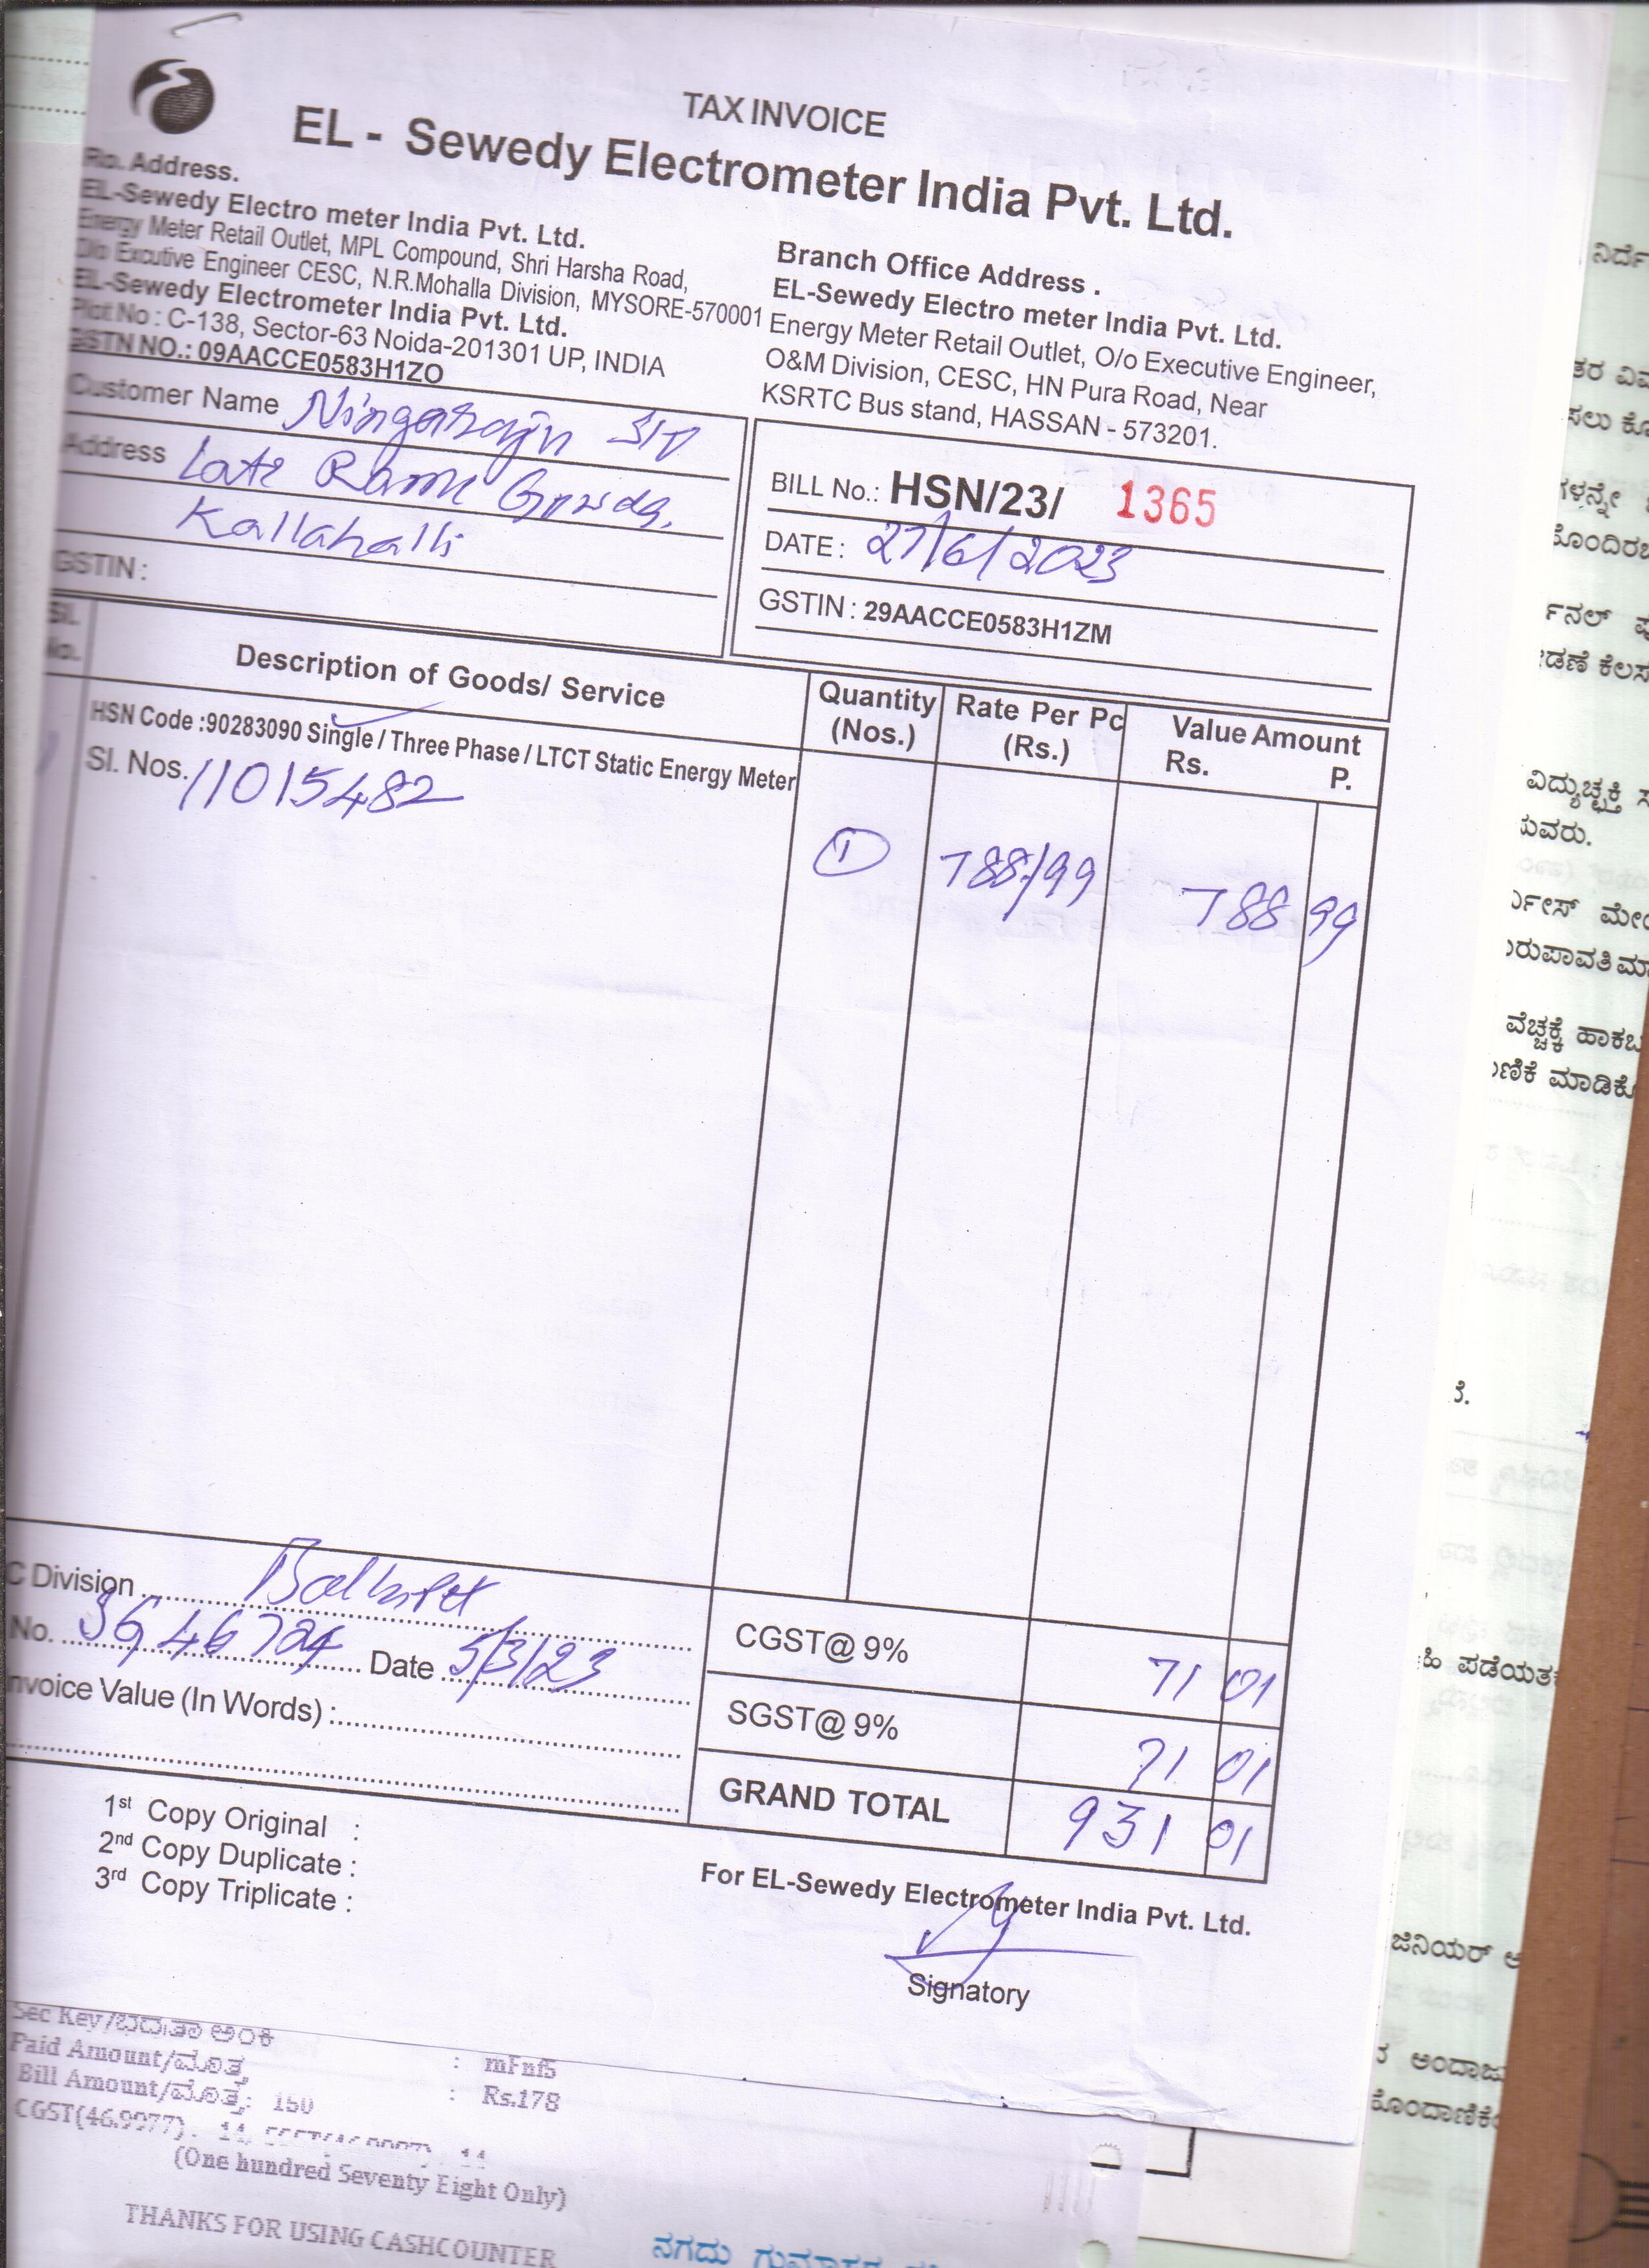 TAX INVOICE
EL - Sewedy Electrometer India Pvt. Ltd.
Ro. Address.
EL-Sewedy Electro meter India Pvt. Ltd.
Energy Meter Retail Outlet, MPL Compound, Shri Harsha Road,
O/o Excutive Engineer CESC, N.R.Mohalla Division, MYSORE-570001
EL-Sewedy Electrometer India Pvt. Ltd.
Plot No : C-138, Sector-63 Noida-201301 UP, INDIA
GSTN NO.: 09AACCE0583H1ZO
Branch Office Address .
EL-Sewedy Electro meter India Pvt. Ltd.
Energy Meter Retail Outlet, O/o Executive Engineer,
O&M Division, CESC, HN Pura Road, Near
KSRTC Bus stand, HASSAN - 573201.
Customer Name Ningaraju S/o
Address Late Rame Gowda,
Kallahalli
GSTIN :
BILL No.: HSN/23/ 1365
DATE : 27/6/2023
GSTIN : 29AACCE0583H1ZM
Sl. No. Description of Goods/ Service Quantity (Nos.) Rate Per Pc (Rs.) Value Amount Rs. P.
HSN Code :90283090 Single / Three Phase / LTCT Static Energy Meter
Sl. Nos. 11015482
1 788/99 788 99
C Division
No. 3646724 Date 5/3/23
nvoice Value (In Words) :
CGST@ 9% 71 01
SGST@ 9% 71 01
GRAND TOTAL 931 01
1st Copy Original :
2nd Copy Duplicate :
3rd Copy Triplicate :
For EL-Sewedy Electrometer India Pvt. Ltd.
Signatory
Sec Key/ಭದ್ರತಾ ಅಂಕಿ : mFnf5
Paid Amount/ಮೊತ್ತ : Rs.178
Bill Amount/ಮೊತ್ತ: 150
CGST(46.9977) : 14,
(One hundred Seventy Eight Only)
THANKS FOR USING CASHCOUNTER
ನಗದು
ನಿರ್ದೆ
ತರ ವಿವ
ಸಲು ಕೊ
ಗಳನ್ನೇ
ಕೊಂದಿರಬ
ರ್ನಲ್
ಡಣೆ ಕೆಲಸ
ವಿದ್ಯುಚ್ಛಕ್ತಿ ಸ
ುವರು.
ರ್ವೀಸ್ ಮೇ
ುರುಪಾವತಿಮಾ
ವೆಚ್ಚಕ್ಕೆ ಹಾಕಬ
ಣಿಕೆ ಮಾಡಿಕೊ
ಹಿ ಪಡೆಯತಕ
ಜಿನಿಯರ್ ಅ
ರ ಅಂದಾಜು
ಕೊಂದಾಣಿಕೆ